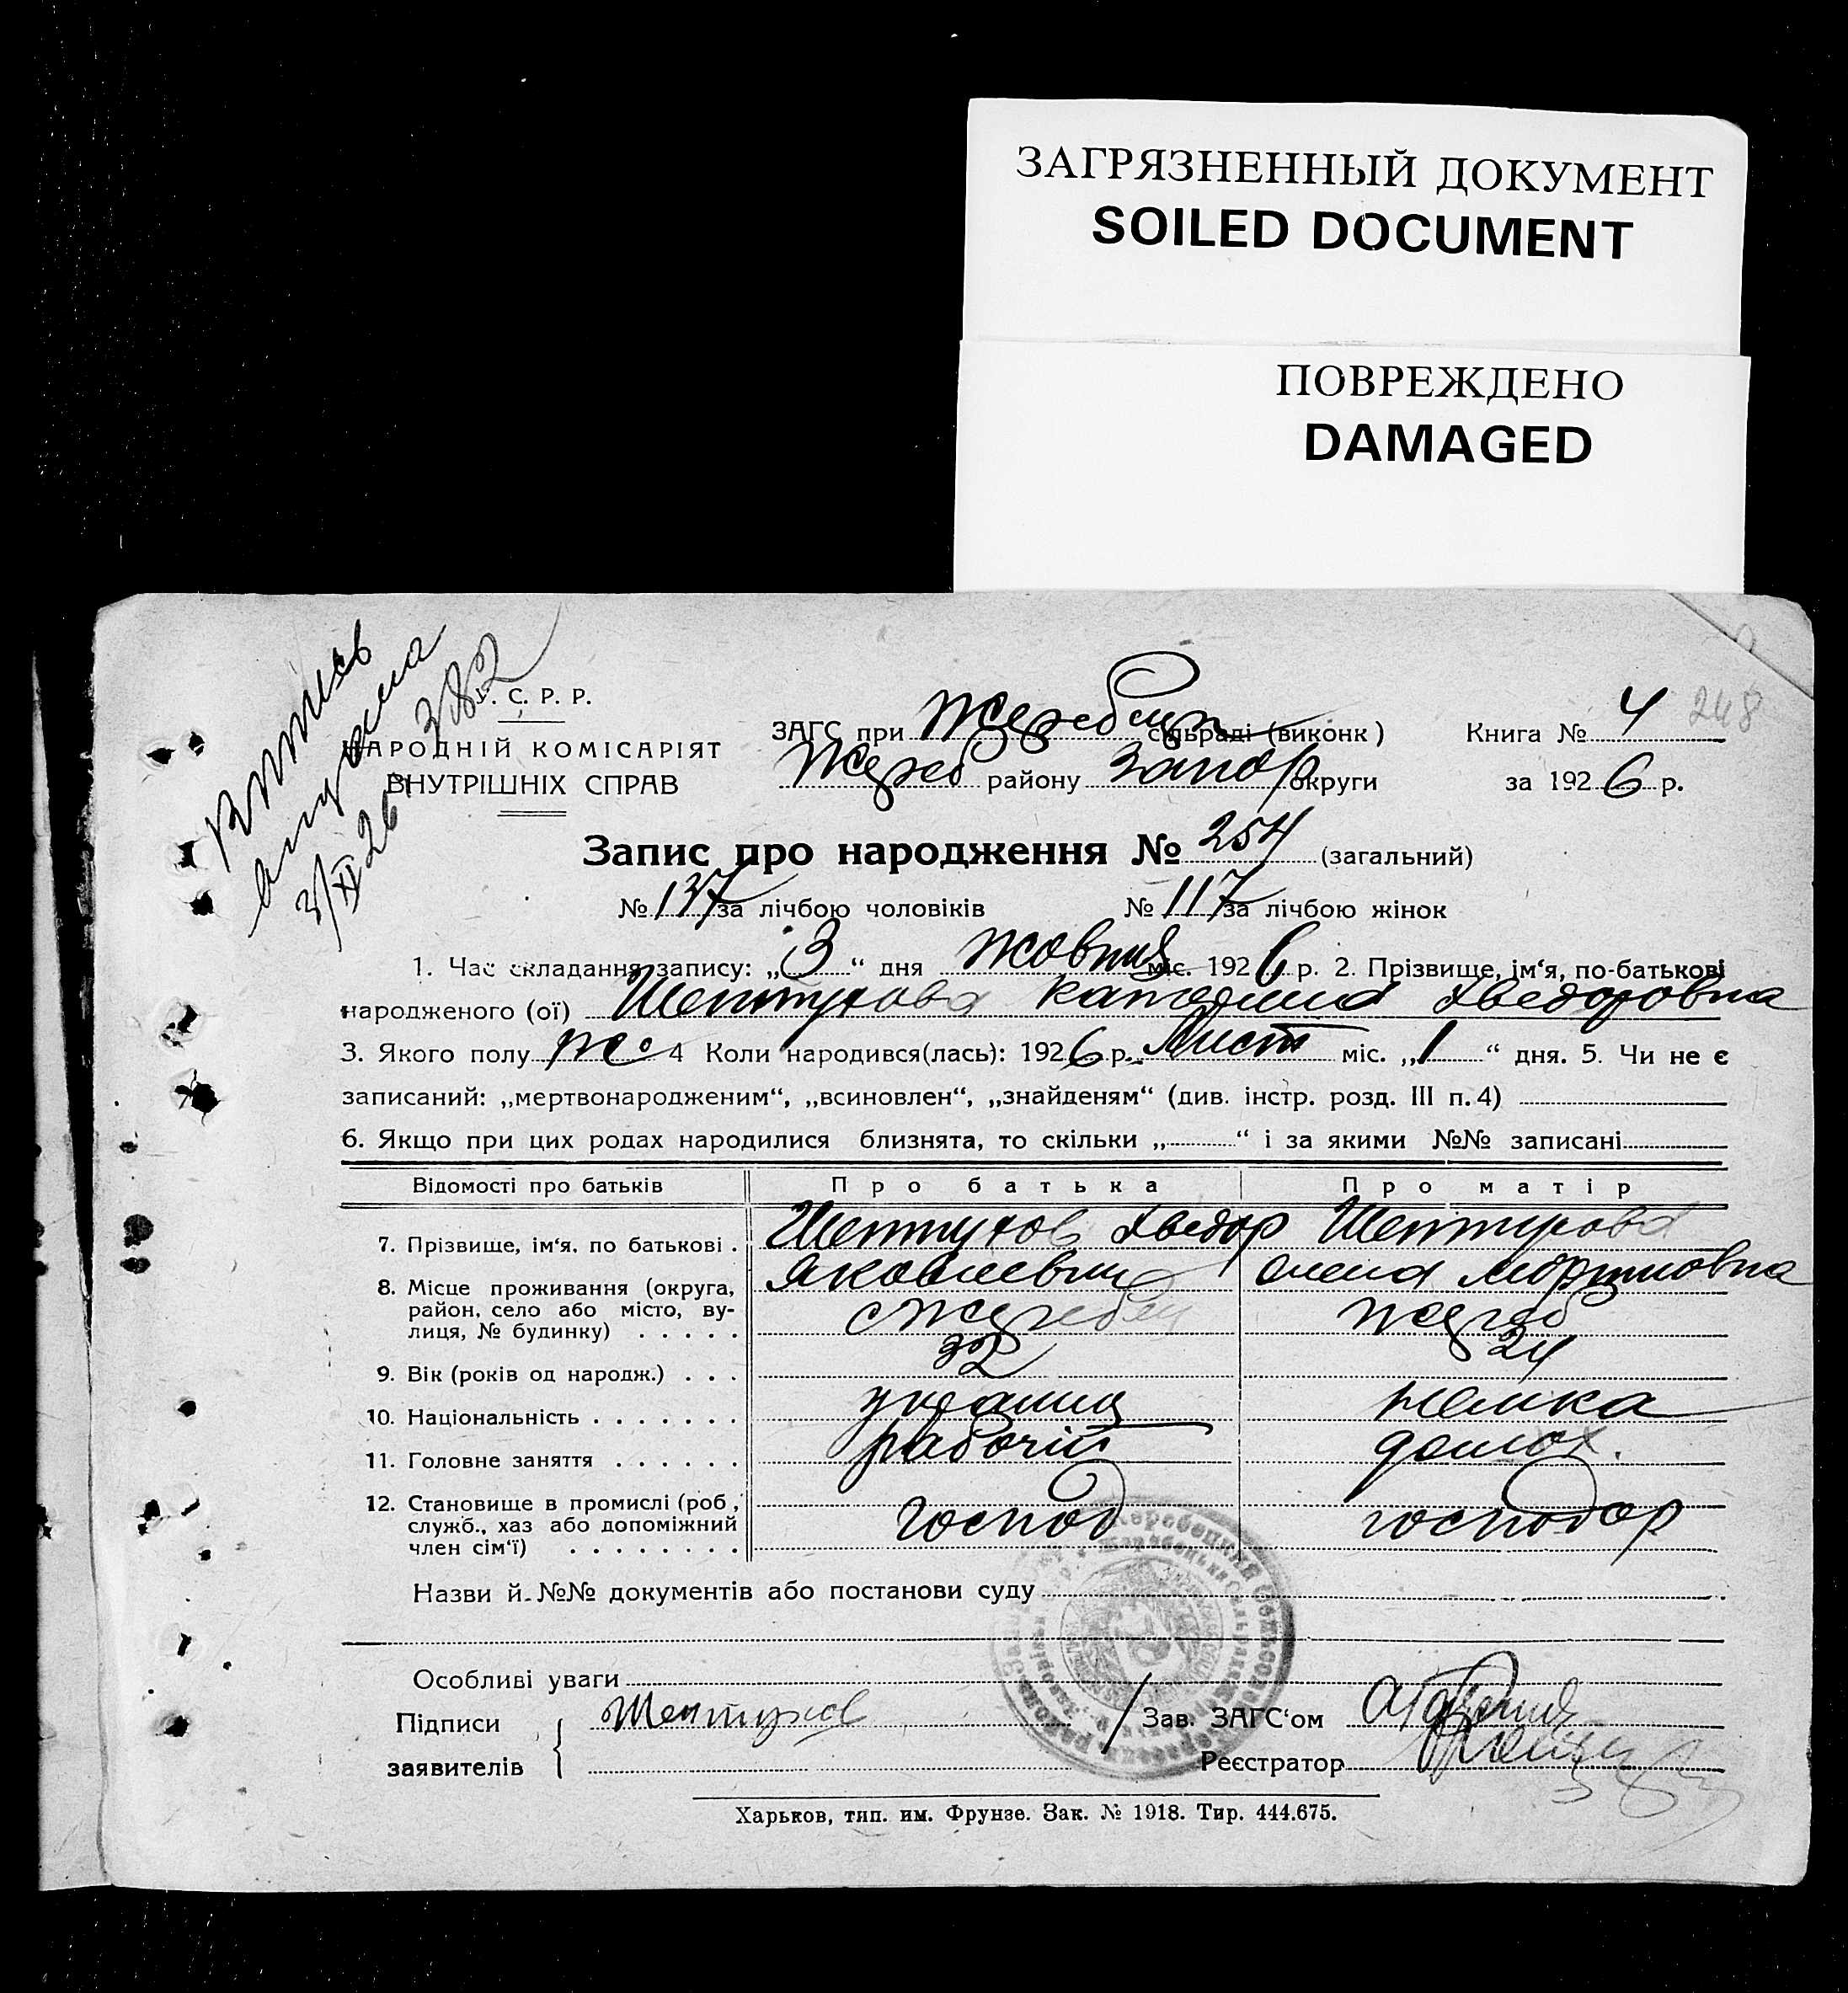 ЗАГРЯЗНЕННЫЙ ДОКУМЕНТ
SOILED DOCUMENT
ПОВРЕЖДЕНО
DAMAGED
382
3/XI 26
У. С. Р. Р.
НАРОДНІЙ КОМІСАРІЯТ
ВНУТРІШНІХ СПРАВ
ЗАГС при Жеребецк сільраді (виконк)
Жереб району Запор округи
Книга № 4 248
за 1926 р.
Запис про народження № 254 (загальний)
№ 137 за лічбою чоловіків № 117 за лічбою жінок
1. Час складання запису: „3“ дня жовтня міс. 1926 р. 2. Прізвище, ім‘я, по-батькові
народженого (ої) Шептухова Катерина Хведоровна
3. Якого полу ж. 4 Коли народився(лась): 1926 р. Лист міс. „1“ дня. 5. Чи не є
записаний: „мертвонародженим“, „всиновлен“, „знайденям“ (див. інстр. розд. III п. 4)
6. Якщо при цих родах народилися близнята, то скільки „ “ і за якими №№ записані
Відомості про батьків Про батька Про матір
7. Прізвище, ім‘я, по батькові . Шептухов Хведор Яковлевич Шептухова Олена
8. Місце проживання (округа, район, село або місто, вулиця, № будинку) . . . . . с Жеребец Жереб
9. Вік (років од народж.) . . . 32 24
10. Національність . . . . . . . українц немка
11. Головне заняття . . . . . . рабочій домох.
12. Становище в промислі (роб, служб., хаз або допоміжний член сім‘ї) . . . . . . . . господ господар
Назви й №№ документів або постанови суду
Особливі уваги
Підписи заявителів Шептухов
Зав. ЗАГС‘ом
Реєстратор
Харьков, тип. им. Фрунзе. Зак. № 1918. Тир. 444.675.